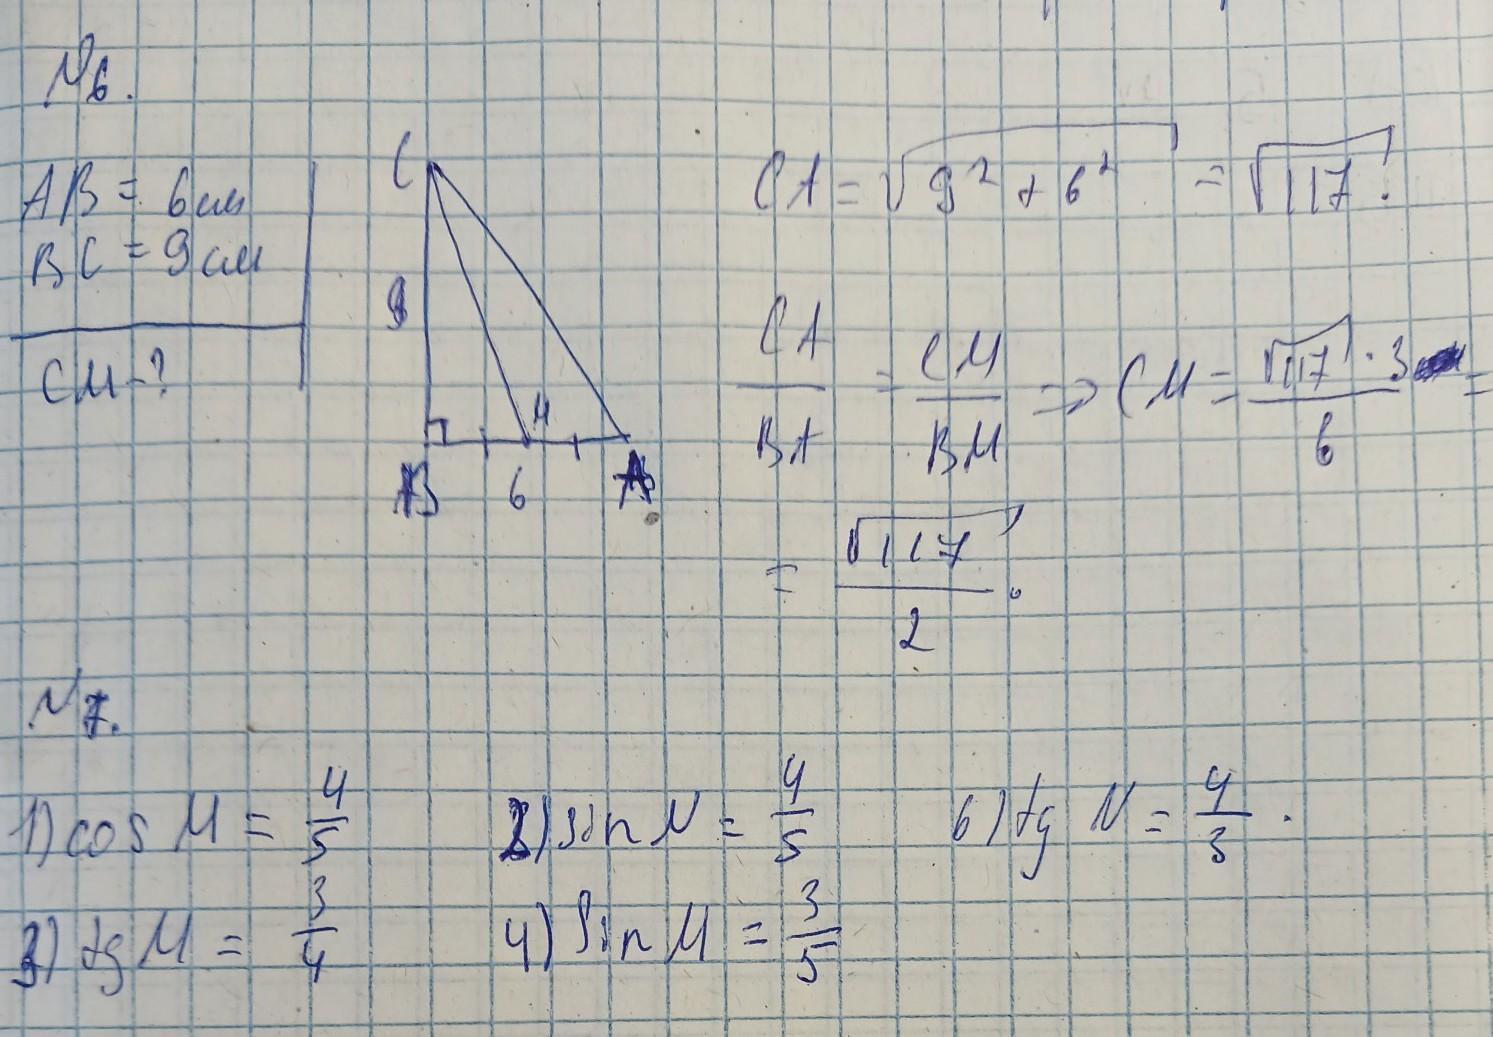 N6.
AB = 6 см
BC = 9 см
CM - ?
C
9
M
B 6 A
CA = √(9² + 6²) = √117
CA/BA = CM/BM => CM = √117 · 3 / 6 =
= √117 / 2.
N7.
1) cos M = 4/5 2) sin N = 4/5 6) tg N = 4/3.
3) tg M = 3/4 4) sin M = 3/5